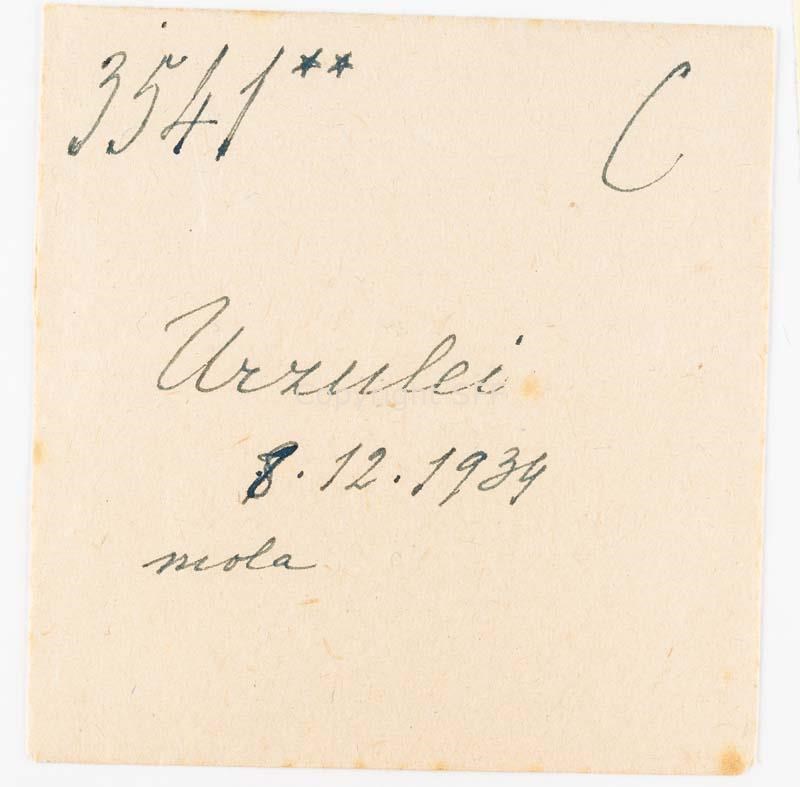 3541** C
Urzulei
8.12.1934
mola